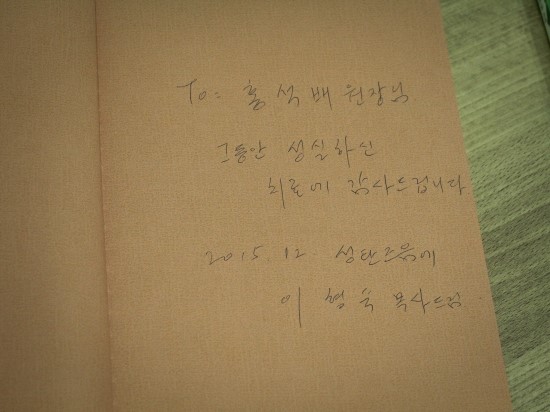 To: 홍석배 원장님
그동안 성실하신
치료에 감사드립니다
2015. 12. 성탄즈음에
이형욱 목사드림